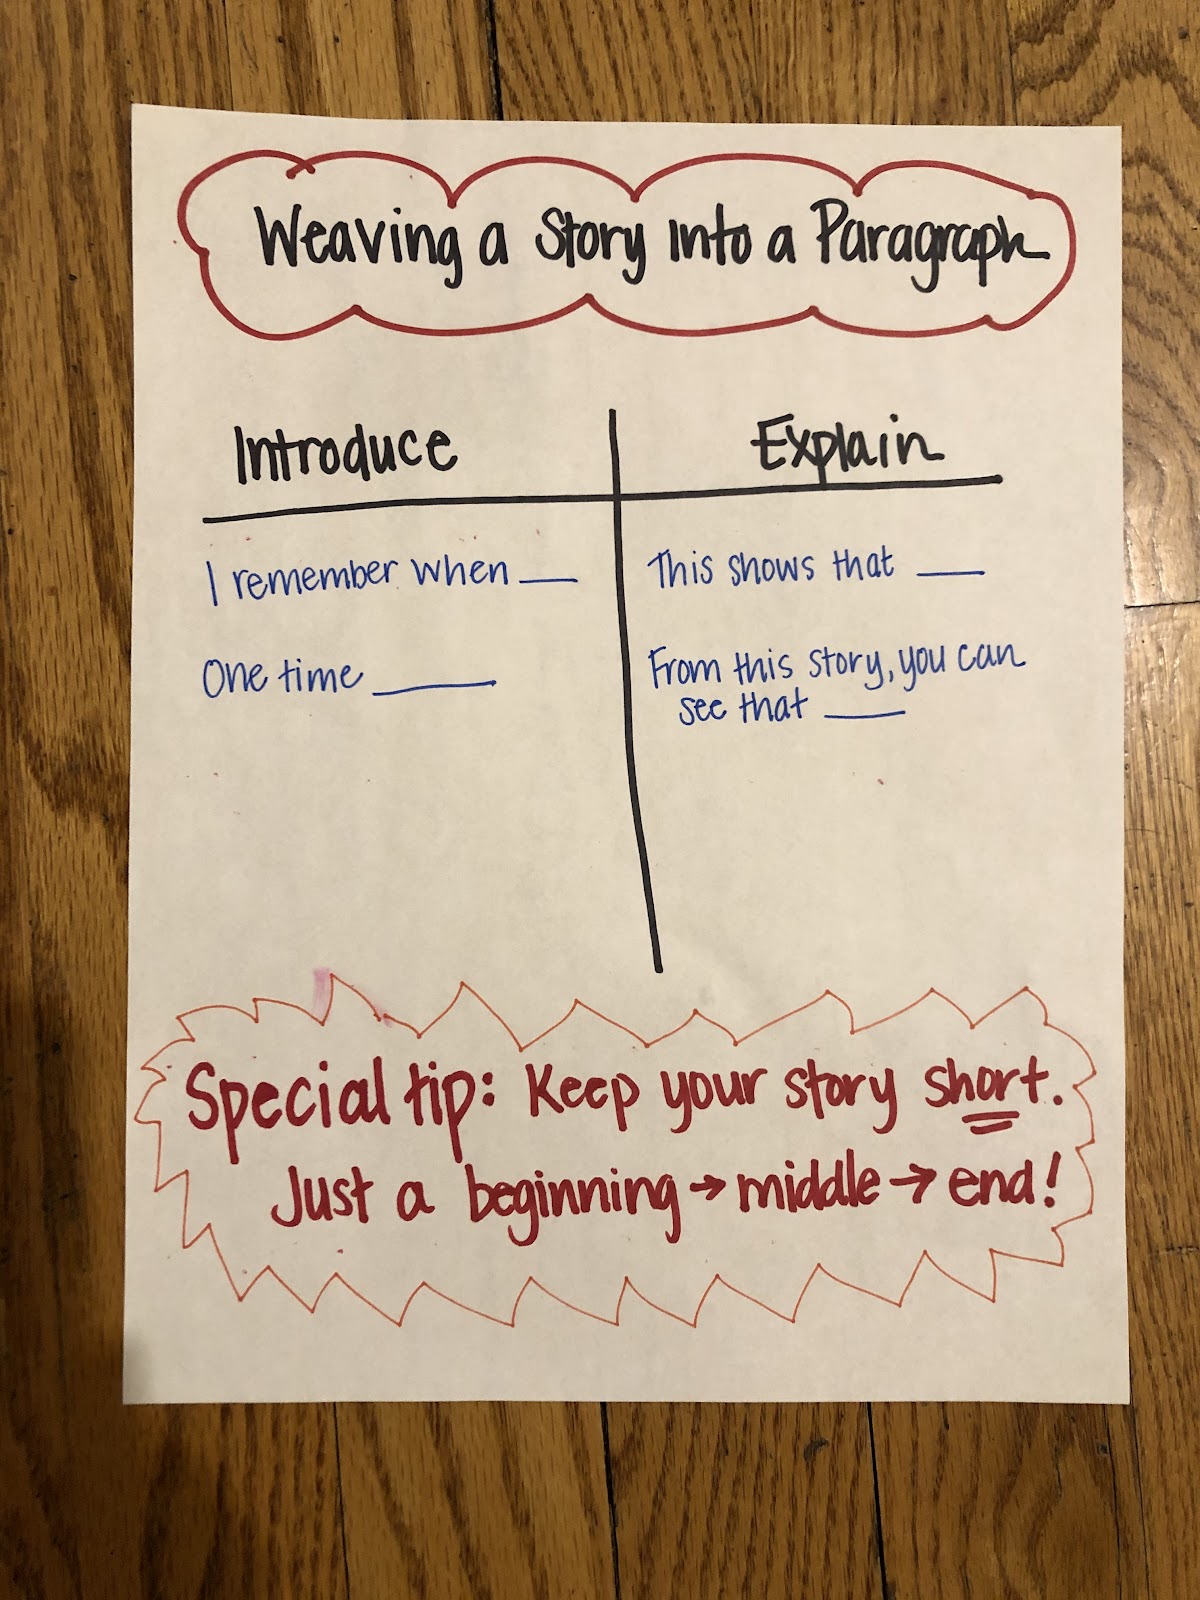 Weaving a Story into a Paragraph
Introduce
Explain
I remember when ___
This shows that ___
One time ___
From this story, you can
see that ___
Special tip: Keep your story short.
Just a beginning → middle → end!